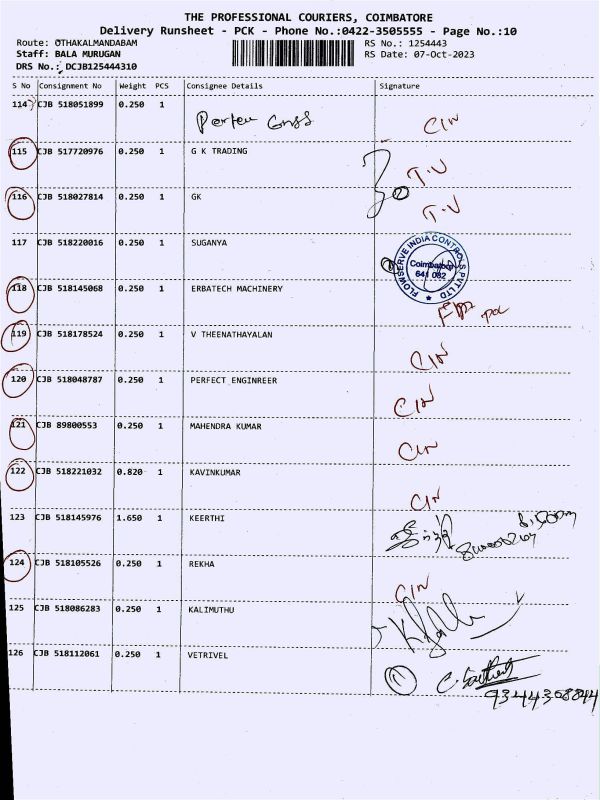 THE PROFESSIONAL COURIERS, COIMBATORE
Delivery Runsheet - PCK - Phone No.:0422-3505555 - Page No.:10
Route: OTHAKALMANDABAM
RS No.: 1254443
Staff: BALA MURUGAN
RS Date: 07-Oct-2023
DRS No.: DCJB125444310
S No Consignment No Weight PCS Consignee Details Signature
114 CJB 518051899 0.250 1
CIN
115 CJB 517720976 0.250 1 G K TRADING
T.V
116 CJB 518027814 0.250 1 GK
T.V
117 CJB 518220016 0.250 1 SUGANYA
FLOWSERVE INDIA CONTROLS PVT LTD
Coimbatore
641 032
118 CJB 518145068 0.250 1 ERBATECH MACHINERY
119 CJB 518178524 0.250 1 V THEENATHAYALAN
CIN
120 CJB 518048787 0.250 1 PERFECT ENGINREER
CIN
121 CJB 89800553 0.250 1 MAHENDRA KUMAR
CIN
122 CJB 518221032 0.820 1 KAVINKUMAR
CIN
123 CJB 518145976 1.650 1 KEERTHI
124 CJB 518105526 0.250 1 REKHA
CIN
125 CJB 518086283 0.250 1 KALIMUTHU
126 CJB 518112061 0.250 1 VETRIVEL
9344368844